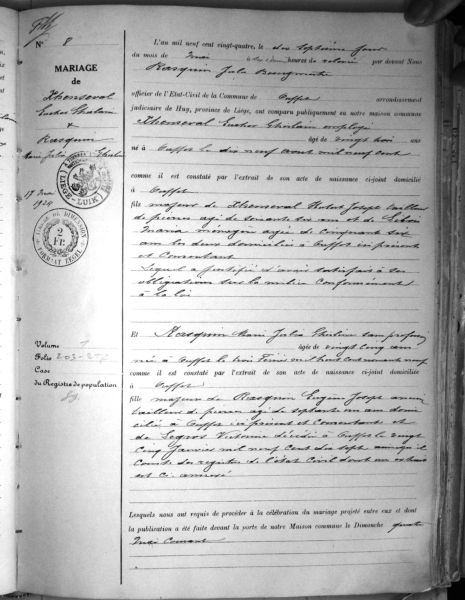 N° 8
MARIAGE
de
Thonseval
&
Rasquin
17 Mai
1924
LIÈGE-LUIK
2
FR.
Volume
Folio
Case
du Registre de population
L'an mil neuf cent vingt-quatre, le dix septième jour
du mois de Mai heures de relevée par devant Nous
Rasquin Jules Bourgmestre
officier de l'Etat-Civil de la Commune de Ouffet arrondissement
judiciaire de Huy, province de Liége, ont comparu publiquement en notre maison commune
Ghislain employé
âgé de vingt trois ans
né à Ouffet le dix neuf août mil neuf cent
comme il est constaté par l'extrait de son acte de naissance ci-joint domicilié
à Ouffet
fils majeur de Joseph tailleur
de pierres âgé de soixante six ans et de
Maria ménagère âgée de cinquante six
ans les deux domiciliés à Ouffet ici présents
et consentant
Lequel a justifié d'avoir satisfait à ses
obligations sur la milice conformément
à la loi
Et Rasquin Marie Julia Ghislaine sans profession
âgée de vingt cinq ans
née à Ouffet le trois mil huit cent nonante neuf
comme il est constaté par l'extrait de son acte de naissance ci-joint domiciliée
à Ouffet
fille majeure de Rasquin Eugène Joseph ancien
tailleur de pierres âgé de septante un ans domi
cilié à Ouffet ici présent et consentant et
de Legros Victorine décédée à Ouffet le vingt
cinq Janvier mil neuf cent dix sept
des registres de l'état civil dont un extrait
est ci annexé
Lesquels nous ont requis de procéder à la célébration du mariage projeté entre eux et dont
la publication a été faite devant la porte de notre Maison commune le Dimanche quatre
Mai courant